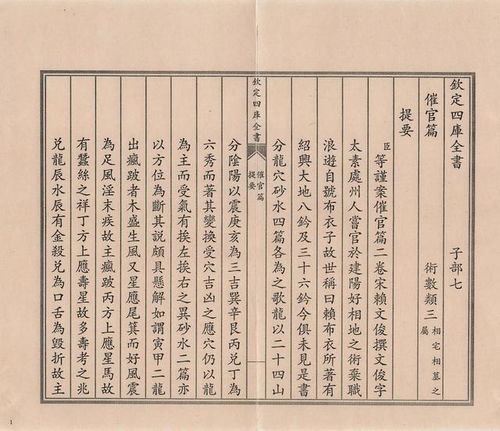 欽定四庫全書 子部七
催官篇 術數類三 相宅相墓之屬
提要
臣等謹案催官篇二卷宋賴文俊撰文俊字
太素處州人嘗官於建陽好相地之術棄職
浪遊自號布衣子故世稱曰賴布衣所著有
紹興大地八鈐及三十六鈐今俱未見是書
分龍穴砂水四篇各為之歌龍以二十四山
欽定四庫全書 催官篇 提要 一
分陰陽以震庚亥為三吉巽辛艮丙兌丁為
六秀而著其變換受穴吉凶之應穴仍以龍
為主而受氣有挨左挨右之異砂水二篇亦
以方位為斷其說頗具懸解如謂寅甲二龍
出瘋跛者木盛生風又星應尾箕而好風震
為足風淫末疾故主瘋跛丙方上應星馬故
有蠶絲之祥丁方上應壽星故多壽考之兆
兌龍辰水辰有金殺兌為口舌為毀折故主
1